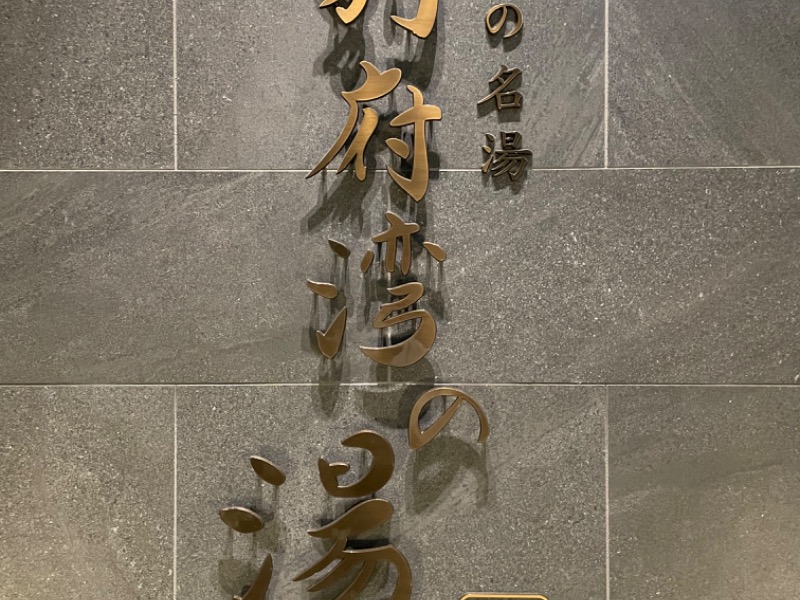 の名湯
府湾の湯